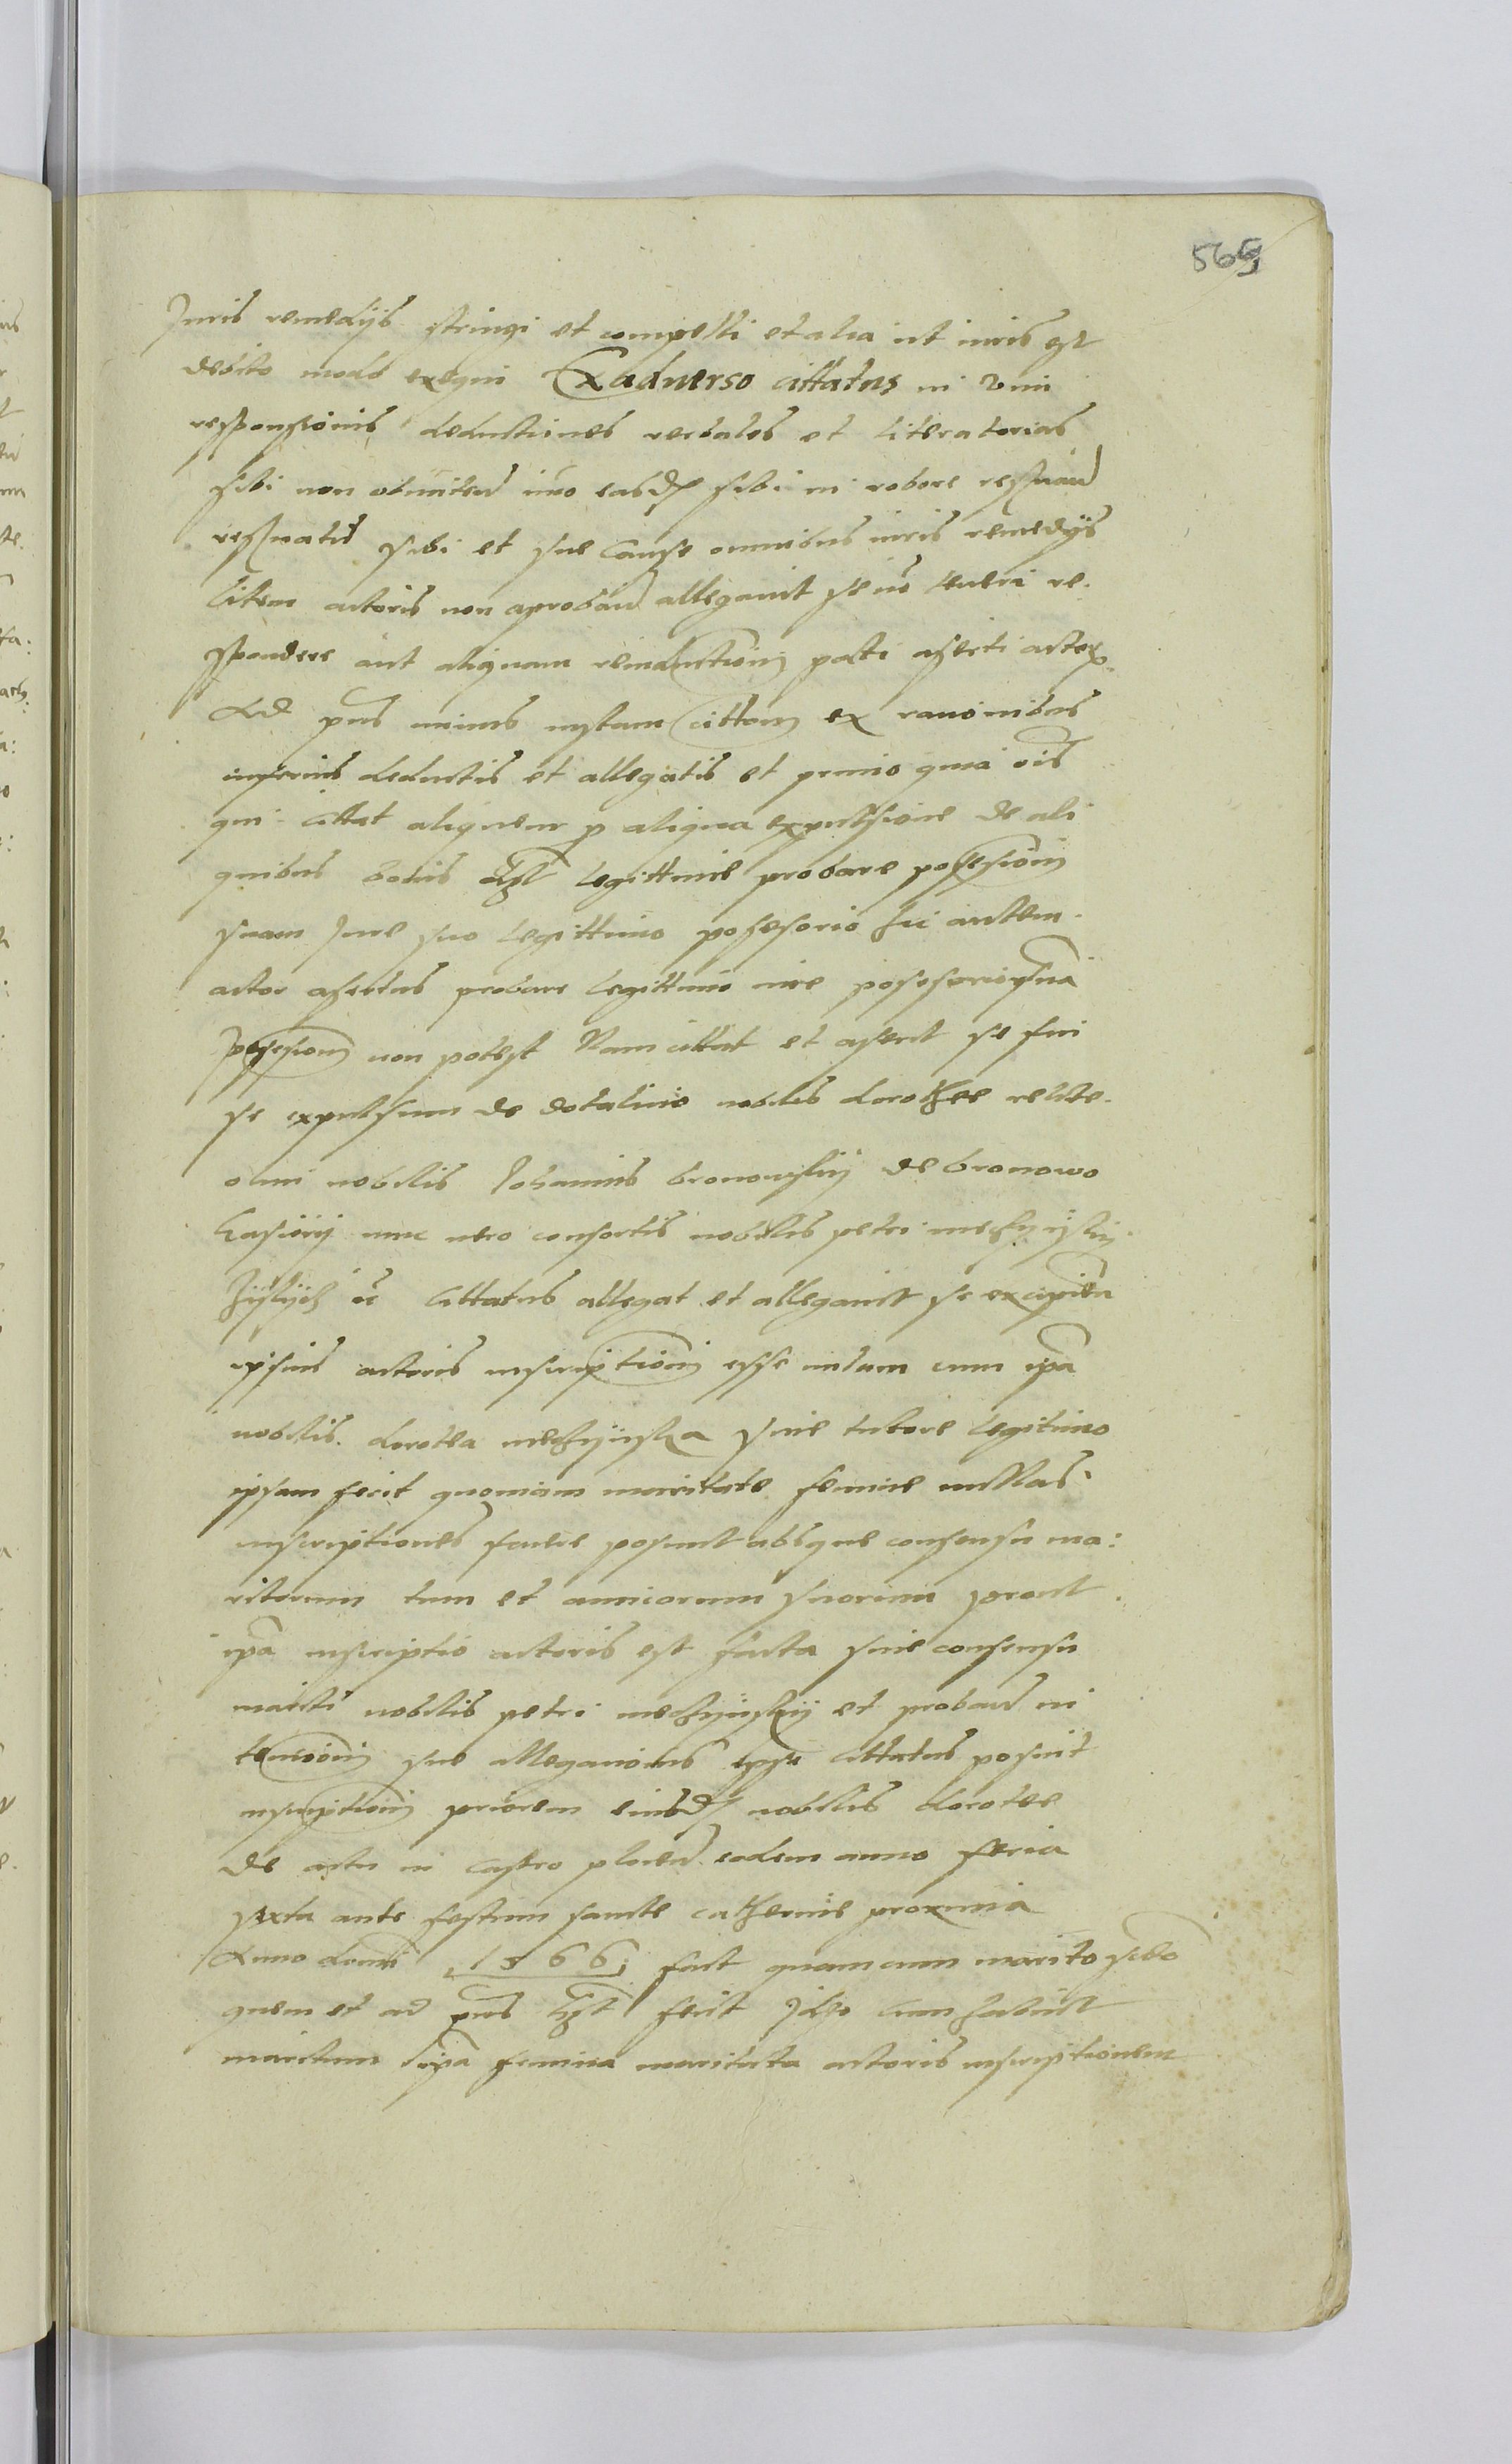 565
Juris remedijs stringi et compelli et alia ut iuris est
debito modo exequi Ex aduerso cittatus in vim
responsionis deductiones verbales et literatorias
sibi non obmittend imo easd sibi in robore reseruand
reseruatis sibi et sue cause omnibus iuris remedijs
litem actoris non aproband allegauit se no teneri re-
spondere aut aliquam reinductionem pati aserti actor
Ad pns minus iustam cittaom ex racionibus
inferius deductis et allegatis et primo quia ois
qui cittat aliquem p aliqua expulsione de ali
quibus bonis legittime probare posesionem
suam Jure suo legittimo posesorio hic autem
actor asertus probare legittimo iure posesorio sua
posesionem non potest Nam cittat et aserit se fui
se expulsum de dotalicio nobilis dorothee relicte
olim nobilis Johannis bronowskij de bronowo
nunc vero consortis nobilis petri
cittatus allegat et allegauit se
ipsius actoris inscriptionem esse nulam cum ipa
nobilis dorotea sine tutore legitimo
ipsam fecit quoniam maritate femine nullas
inscriptiones facere posunt absque consensu ma:
ritorum tum et amicorum suorum prout
ipa inscriptio actoris est facta sine consensu
mariti nobilis petri et proband in
tencionem sue allegacionis ipse cittatus posuit
inscriptionem priorem eiusd nobilis dorotee
de actu in castro plocen eodem anno feria
sexta ante festum sancte catherine proxima
Anno domi 1566 fact quam cum marito scdo
quem et ad pns het fecit Ideo cum habuit
maritum ipa femina maritata actoris inscriptionem